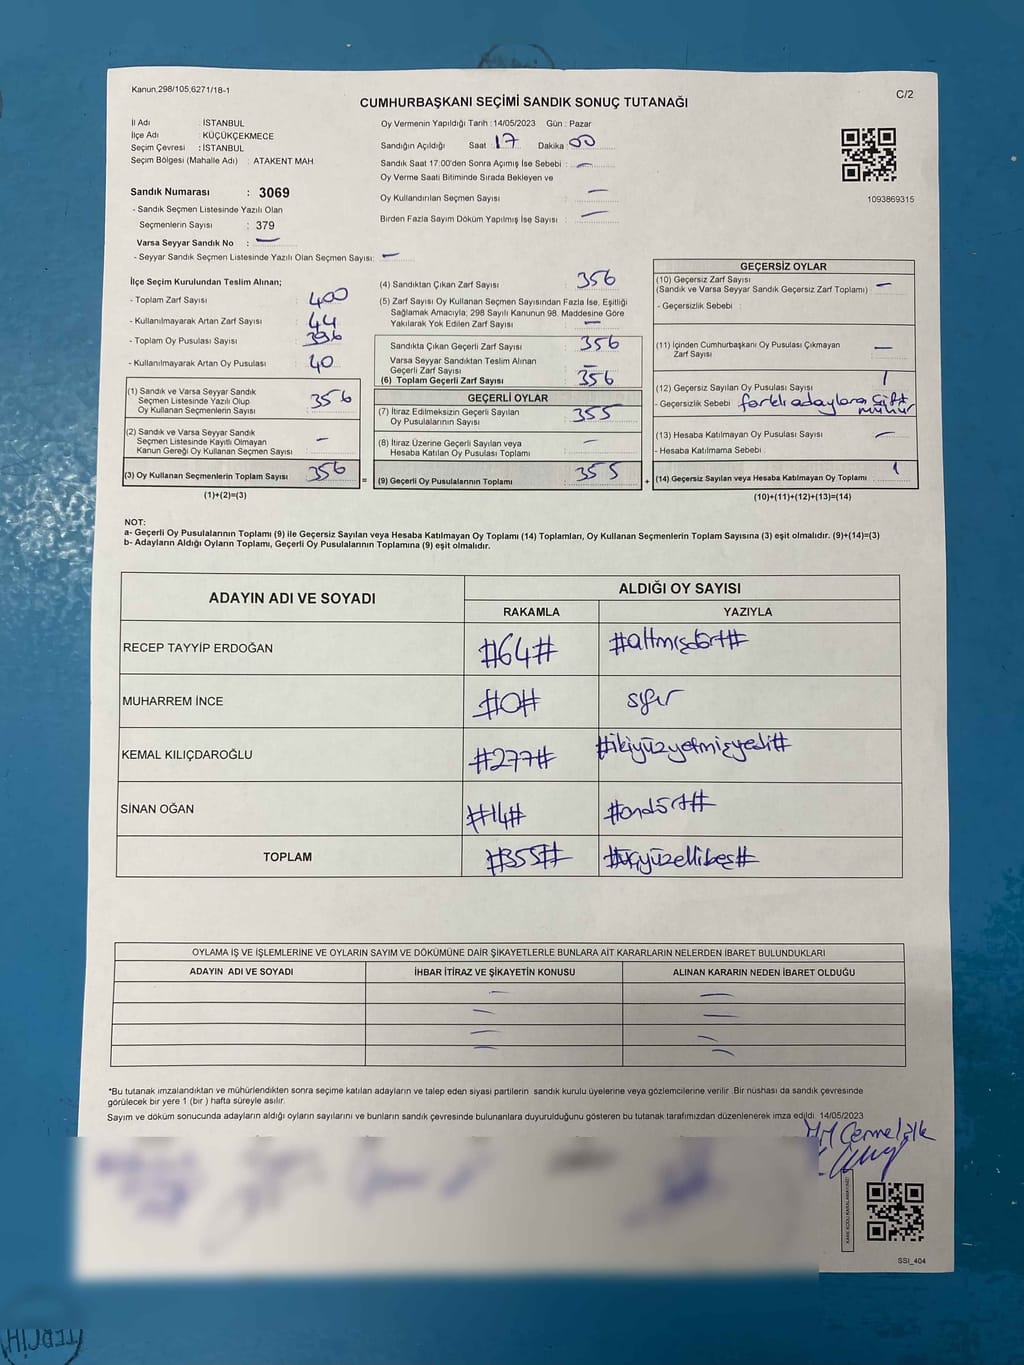 Kanun,298/105,6271/18-1
C/2
CUMHURBAŞKANI SEÇİMİ SANDIK SONUÇ TUTANAĞI
İl Adı : İSTANBUL
İlçe Adı : KÜÇÜKÇEKMECE
Seçim Çevresi : İSTANBUL
Seçim Bölgesi (Mahalle Adı) : ATAKENT MAH
Sandık Numarası : 3069
- Sandık Seçmen Listesinde Yazılı Olan
Seçmenlerin Sayısı : 379
Varsa Seyyar Sandık No : —
- Seyyar Sandık Seçmen Listesinde Yazılı Olan Seçmen Sayısı: —
Oy Vermenin Yapıldığı Tarih : 14/05/2023 Gün : Pazar
Sandığın Açıldığı Saat 17 Dakika 00
Sandık Saat 17:00'den Sonra Açımış İse Sebebi : —
Oy Verme Saati Bitiminde Sırada Bekleyen ve
Oy Kullandırılan Seçmen Sayısı : —
Birden Fazla Sayım Döküm Yapılmış İse Sayısı : —
1093869315
İlçe Seçim Kurulundan Teslim Alınan;
- Toplam Zarf Sayısı : 400
- Kullanılmayarak Artan Zarf Sayısı : 44
- Toplam Oy Pusulası Sayısı : 396
- Kullanılmayarak Artan Oy Pusulası : 40
(1) Sandık ve Varsa Seyyar Sandık
Seçmen Listesinde Yazılı Olup
Oy Kullanan Seçmenlerin Sayısı : 356
(2) Sandık ve Varsa Seyyar Sandık
Seçmen Listesinde Kayıtlı Olmayan
Kanun Gereği Oy Kullanan Seçmen Sayısı : —
(3) Oy Kullanan Seçmenlerin Toplam Sayısı : 356
(1)+(2)=(3)
(4) Sandıktan Çıkan Zarf Sayısı : 356
(5) Zarf Sayısı Oy Kullanan Seçmen Sayısından Fazla İse, Eşitliği
Sağlamak Amacıyla; 298 Sayılı Kanunun 98. Maddesine Göre
Yakılarak Yok Edilen Zarf Sayısı : —
Sandıkta Çıkan Geçerli Zarf Sayısı : 356
Varsa Seyyar Sandıktan Teslim Alınan
Geçerli Zarf Sayısı : —
(6) Toplam Geçerli Zarf Sayısı : 356
GEÇERLİ OYLAR
(7) İtiraz Edilmeksizin Geçerli Sayılan
Oy Pusulalarının Sayısı : 355
(8) İtiraz Üzerine Geçerli Sayılan veya
Hesaba Katılan Oy Pusulası Toplamı : —
= (9) Geçerli Oy Pusulalarının Toplamı : 355 +
GEÇERSİZ OYLAR
(10) Geçersiz Zarf Sayısı
(Sandık ve Varsa Seyyar Sandık Geçersiz Zarf Toplamı) : —
- Geçersizlik Sebebi :
(11) İçinden Cumhurbaşkanı Oy Pusulası Çıkmayan
Zarf Sayısı : —
(12) Geçersiz Sayılan Oy Pusulası Sayısı : 1
- Geçersizlik Sebebi : farklı adaylara çift
mühür
(13) Hesaba Katılmayan Oy Pusulası Sayısı : —
- Hesaba Katılmama Sebebi :
(14) Geçersiz Sayılan veya Hesaba Katılmayan Oy Toplamı : 1
(10)+(11)+(12)+(13)=(14)
NOT:
a- Geçerli Oy Pusulalarının Toplamı (9) ile Geçersiz Sayılan veya Hesaba Katılmayan Oy Toplamı (14) Toplamları, Oy Kullanan Seçmenlerin Toplam Sayısına (3) eşit olmalıdır. (9)+(14)=(3)
b- Adayların Aldığı Oyların Toplamı, Geçerli Oy Pusulalarının Toplamına (9) eşit olmalıdır.
ADAYIN ADI VE SOYADI
ALDIĞI OY SAYISI
RAKAMLA YAZIYLA
RECEP TAYYİP ERDOĞAN #64# #altmışdört#
MUHARREM İNCE #0# sıfır
KEMAL KILIÇDAROĞLU #277# #ikiyüzyetmişyedi#
SİNAN OĞAN #14# #ondört#
TOPLAM #355# #üçyüzellibeş#
OYLAMA İŞ VE İŞLEMLERİNE VE OYLARIN SAYIM VE DÖKÜMÜNE DAİR ŞİKAYETLERLE BUNLARA AİT KARARLARIN NELERDEN İBARET BULUNDUKLARI
ADAYIN ADI VE SOYADI İHBAR İTİRAZ VE ŞİKAYETİN KONUSU ALINAN KARARIN NEDEN İBARET OLDUĞU
— —
— —
— —
— —
*Bu tutanak imzalandıktan ve mühürlendikten sonra seçime katılan adayların ve talep eden siyasi partilerin sandık kurulu üyelerine veya gözlemcilerine verilir. Bir nüshası da sandık çevresinde
görülecek bir yere 1 (bir ) hafta süreyle asılır.
Sayım ve döküm sonucunda adayların aldığı oyların sayılarını ve bunların sandık çevresinde bulunanlara duyurulduğunu gösteren bu tutanak tarafımızdan düzenlenerek imza edildi. 14/05/2023
SSI_404
TERCİH